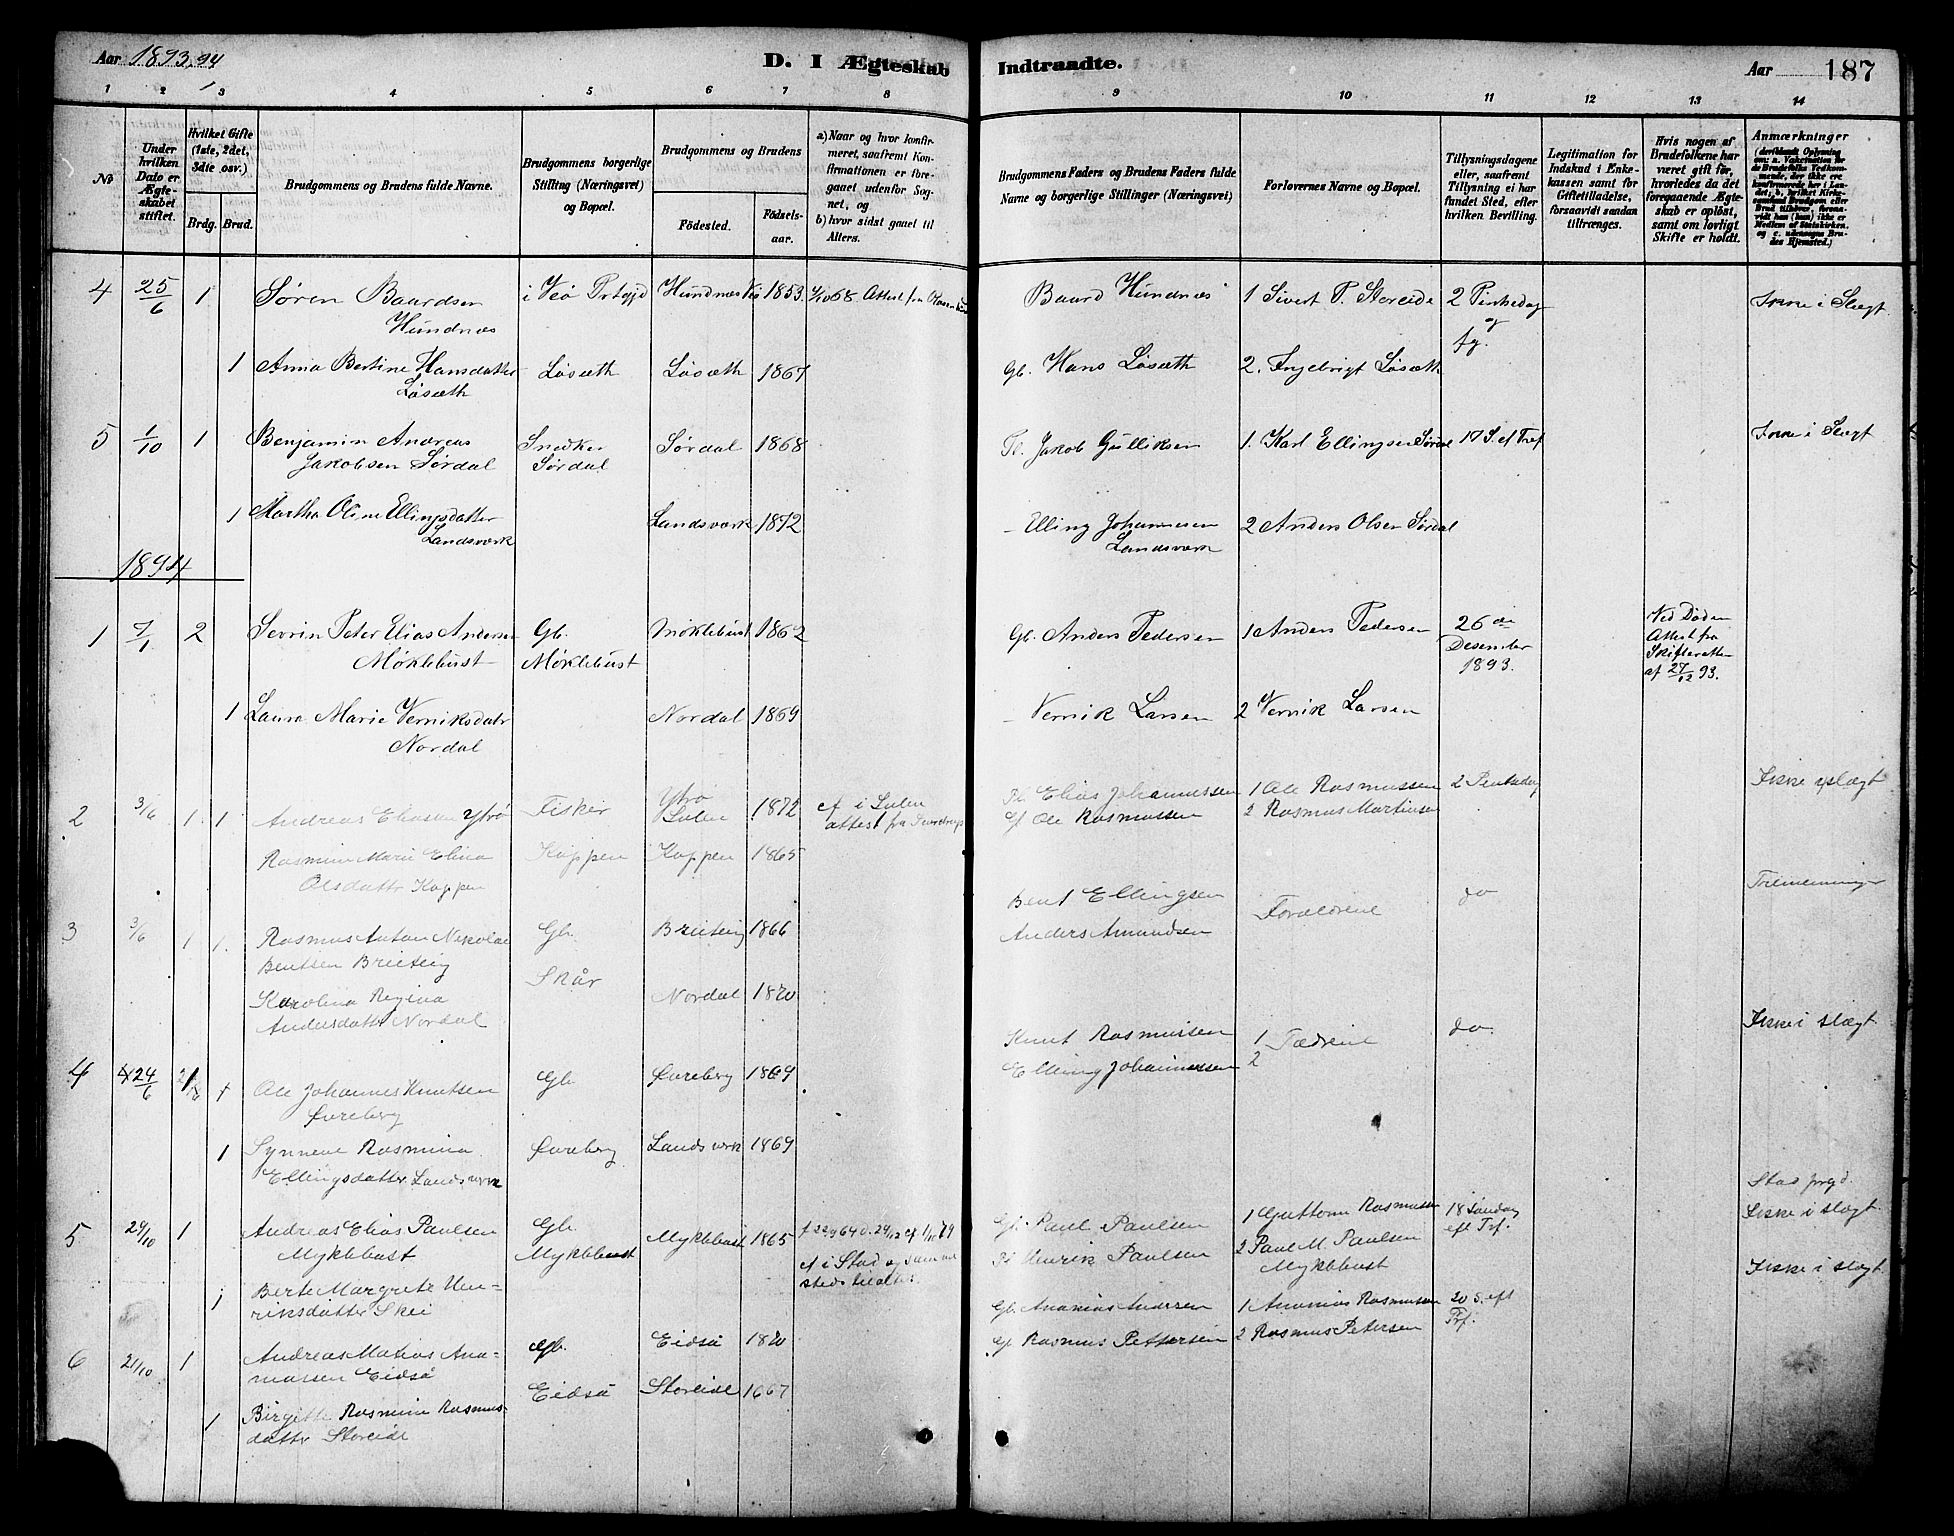 Aar 1893.94
D. I Ægteskab Indtraadte.
Aar 187
1 2 3 4 5 6 7 8 9 10 11 12 13 14
No
Under hvilken Dato er Ægteskabet stiftet.
Hvilket Gifte (1ste, 2det, 3die osv.)
Brdg. Brud.
Brudgommens og Brudens fulde Navne.
Brudgommens borgerlige Stilling (Næringsvei) og Bopæl.
Brudgommens og Brudens
Fødested.
Fødsels-aar.
a) Naar og hvor konfirmeret, saafremt Konfirmationen er foregaaet udenfor Sognet, og
b) hvor sidst gaaet til Alters.
Brudgommens Faders og Brudens Faders fulde Navne og borgerlige Stillinger (Næringsvei)
Forlovernes Navne og Bopæl.
Tillysningsdagene eller, saafremt Tillysning ei har fundet Sted, efter hvilken Bevilling.
Legitimation for Indskud i Enkekassen samt for Giftetilladelse, forsaavidt saadan tiltrænges.
Hvis nogen af Brudefolkene har været gift før, hvorledes da det foregaaende Ægteskab er opløst, samt om lovligt Skifte er holdt.
Anmærkninger
4 25/6 1 Søren Baardsen Hundnæs
i Veø Prtgjd Hundnæs Veø 1853
Baard Hundnæs
1 Sivert P. Storeide
2 Pintsedag og fg.
Ikke i Slægt
1 Anna Bertine Hansdatter Løsæth
Løsæth Løsæth 1867
Gb. Hans Løsæth
2. Ingebrigt Løsæth
5 1/10 1 Benjamin Andreas Jakobsen Sørdal
Snedker Sørdal Sørdal 1868
Jakob Gulliksen
1. Karl Ellingsen Sørdal
17 S. ef Tref
Ikke i Slægt
1 Martha Oline Ellingsdatter Landsværk
Landsværk 1872
- Elling Johannesen Landsværk
2 Anders Olsen Sørdal
1894
1 7/1 2 Sevrin Peter Elias Andersen Møklebust
Gb. Møklebust Møklebust 1862
Gb. Anders Pedersen
1 Anders Pedersen
26de Desember 1893.
Ved Døden Attest fra Skifteretten af 27/12 93.
1 Laura Marie Verniksdatr Nordal
Nordal 1869
- Vernik Larsen
2 Vernik Larsen
2 3/6 1. 1 Andreas Eliasen Ytrø
Fisker Ytrø Sulen 1872
cf i Sulen attest fra
Elias Johannessen
1 Ole Rasmussen
2 Pintsedag
Ikke i slægt
Rasmine Marie Elina Olsdattr Koppen
Koppen Koppen 1865
Ole Rasmussen
2 Rasmus Martinsen
3 3/6 1 1. Rasmus Anton Nikolai Bentsen Brieteig
Gb. Skår Brieteig 1866
Bent Ellingsen
Forældrene
do
Tremenninger
Karolina Regina Andersdattr Nordal
Nordal 1870
Anders Amundsen
4 24/6 Ole Johannes Knutsen Øvreberg
Gb. Øvreberg 1869
Knut Rasmussen
1 Fædrene
2
do.
Ikke i slægt
1 Synneve Rasmina Ellingsdatter Landsverk
Øvreberg Landsverk 1869
Elling Johannessen
5 29/10 1 Andreas Elias Paulsen Myklebust
Gb. Myklebust Myklebust 1865
cf i Stad og sammesteds til alters
Paul Paulsen
1 Guttorm Rasmussen
18 Søndag eft Trf.
Stad prgd.
Ikke i slægt
1 Berte Margrete Henriksdatter Skei
Henrik Paulsen
2 Paul M. Paulsen Myklebust
6 21/10 1 Andreas Matias Anamassen Eidså
Gb. Eidså Eidså 1870
Gb. Ananias Andersen
1 Ananias Rasmussen
20 S. eft Trf.
Ikke i slægt
1 Birgitte Rasmine Rasmusdatter Storeide
Storeide 1867
Rasmus Pettersen
2 Rasmus Petersen